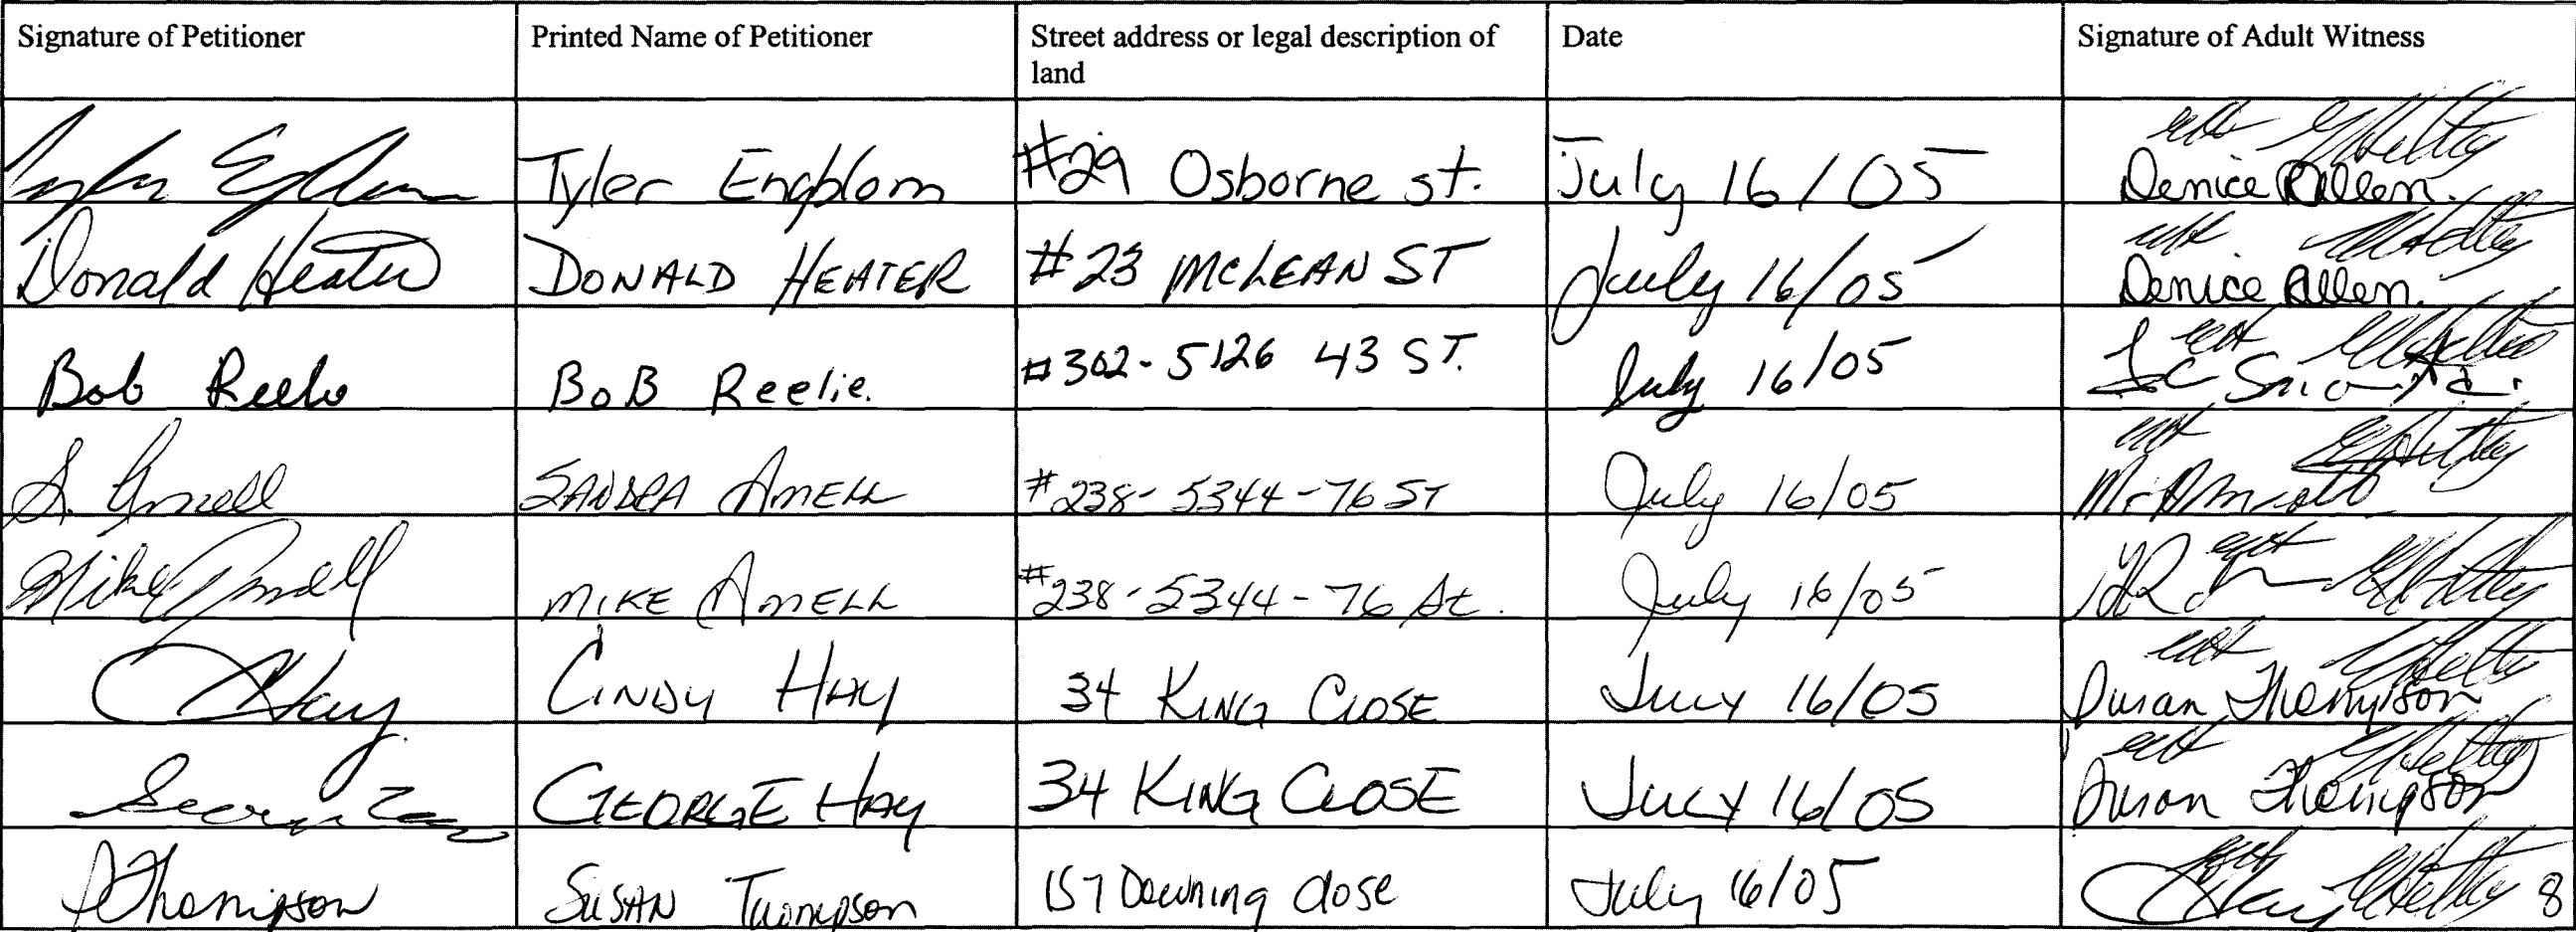 Signature of Petitioner Printed Name of Petitioner Street address or legal description of land Date Signature of Adult Witness
Tyler Engblom #29 Osborne st. July 16/05 Denice Allen.
Donald Heater DONALD HEATER #23 McLEAN ST July 16/05 Denice Allen.
Bob Reelie BoB Reelie. #302-5126 43 ST. July 16/05
S. Amell SANDRA AMELL #238-5344-76 ST July 16/05
Mike Amell MIKE AMELL #238-5344-76 St. July 16/05
CHay CINDY HAY 34 KING CLOSE JULY 16/05 Susan Thompson
GEORGE HAY 34 KING CLOSE JULY 16/05 Susan Thompson
SThompson SUSAN Thompson 157 Downing close July 16/05 CHay 8